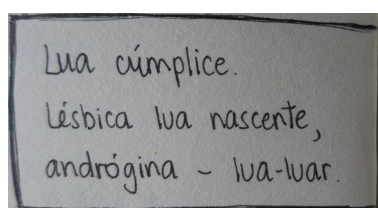 Lua cúmplice.
Lésbica lua nascente,
andrógina – lua-luar.